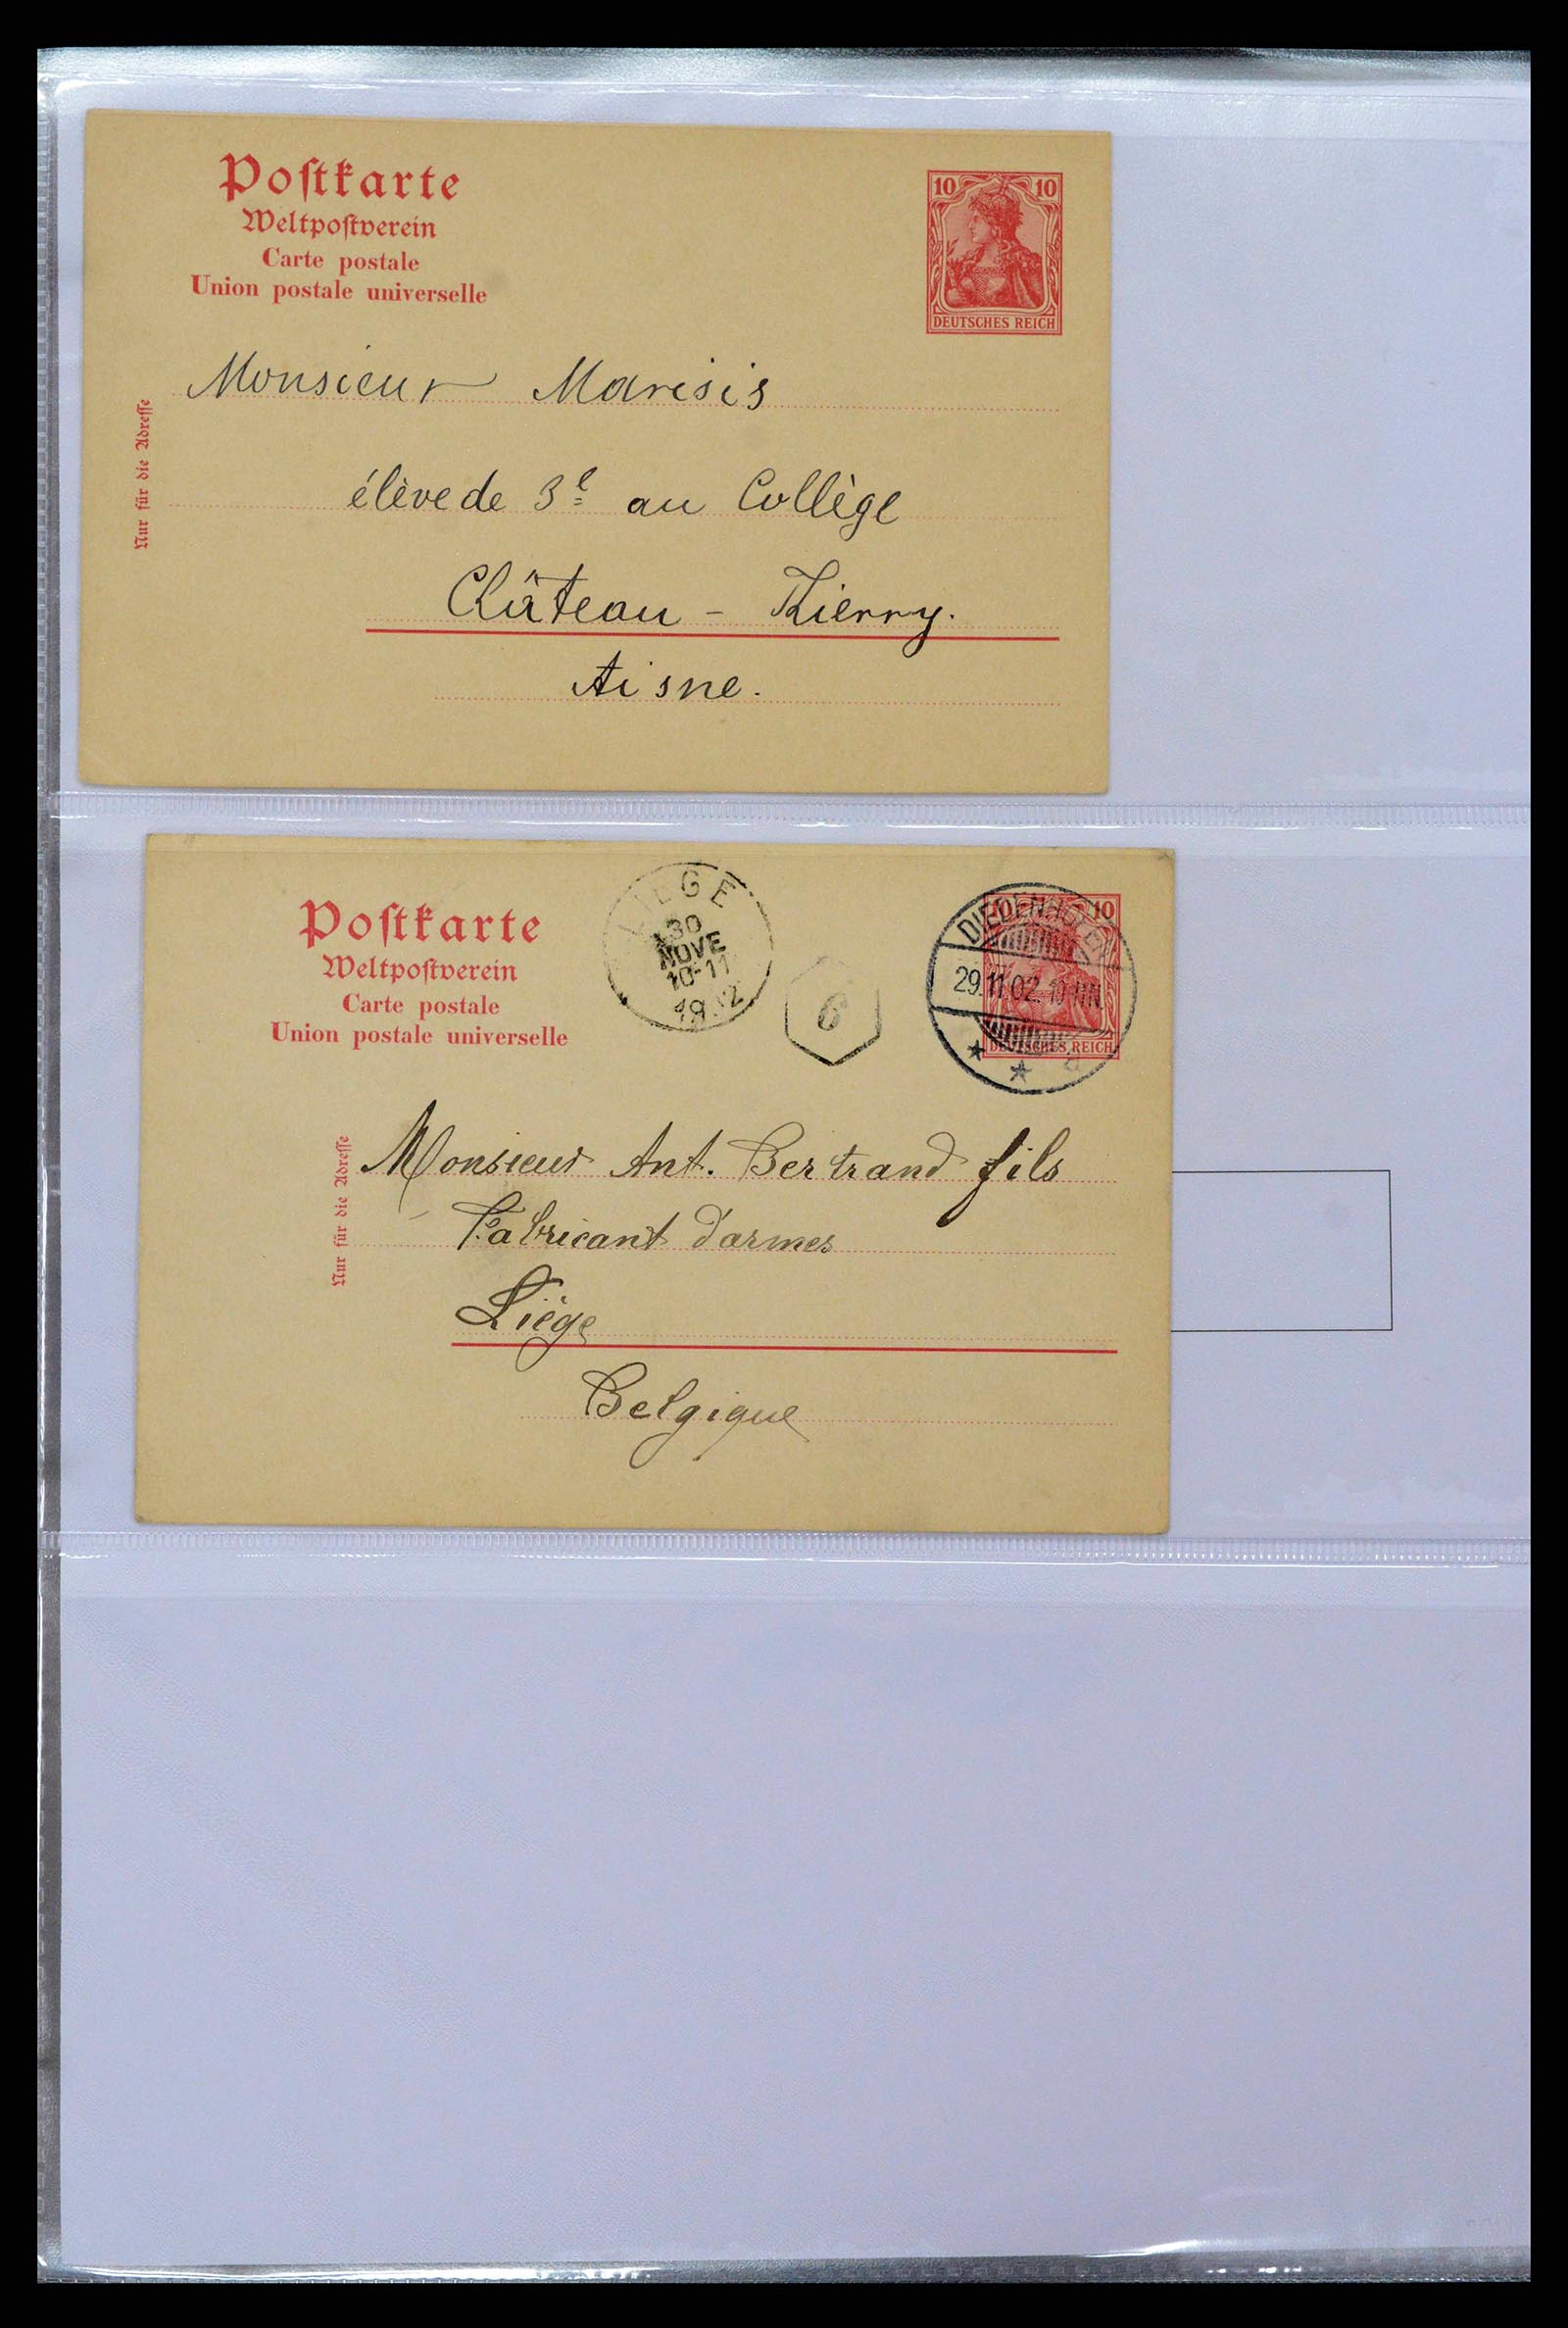 Postkarte
Weltpostverein
Carte postale
Union postale universelle
10 10
DEUTSCHES REICH
Nur für die Adresse
Monsieur Marisis
élève de 3e au Collège
Château - Thierry.
Aisne.
Postkarte
Weltpostverein
Carte postale
Union postale universelle
LIEGE
30
NOVE
10-11
6
10 10
DIEDENHOFEN
29.11.02.
DEUTSCHES REICH
Nur für die Adresse
Monsieur Ant. Bertrand fils
Fabricant d'armes
Liège
Belgique